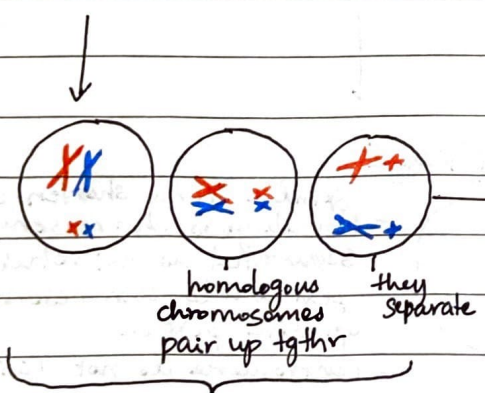 homologous
chromosomes
pair up tgthr
they
separate